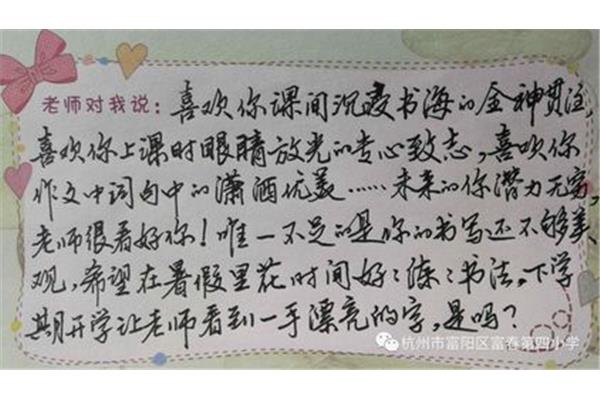 老师对我说：喜欢你课间沉浸书海的全神贯注，
喜欢你上课时眼睛放光的专心致志，喜欢你
作文中词句中的潇洒优美……未来的你潜力无穷，
老师很看好你！唯一不足的是你的书写还不够美
观，希望在暑假里花时间好：练：书法，下学
期开学让老师看到一手漂亮的字，是吗？
杭州市富阳区富春第四小学